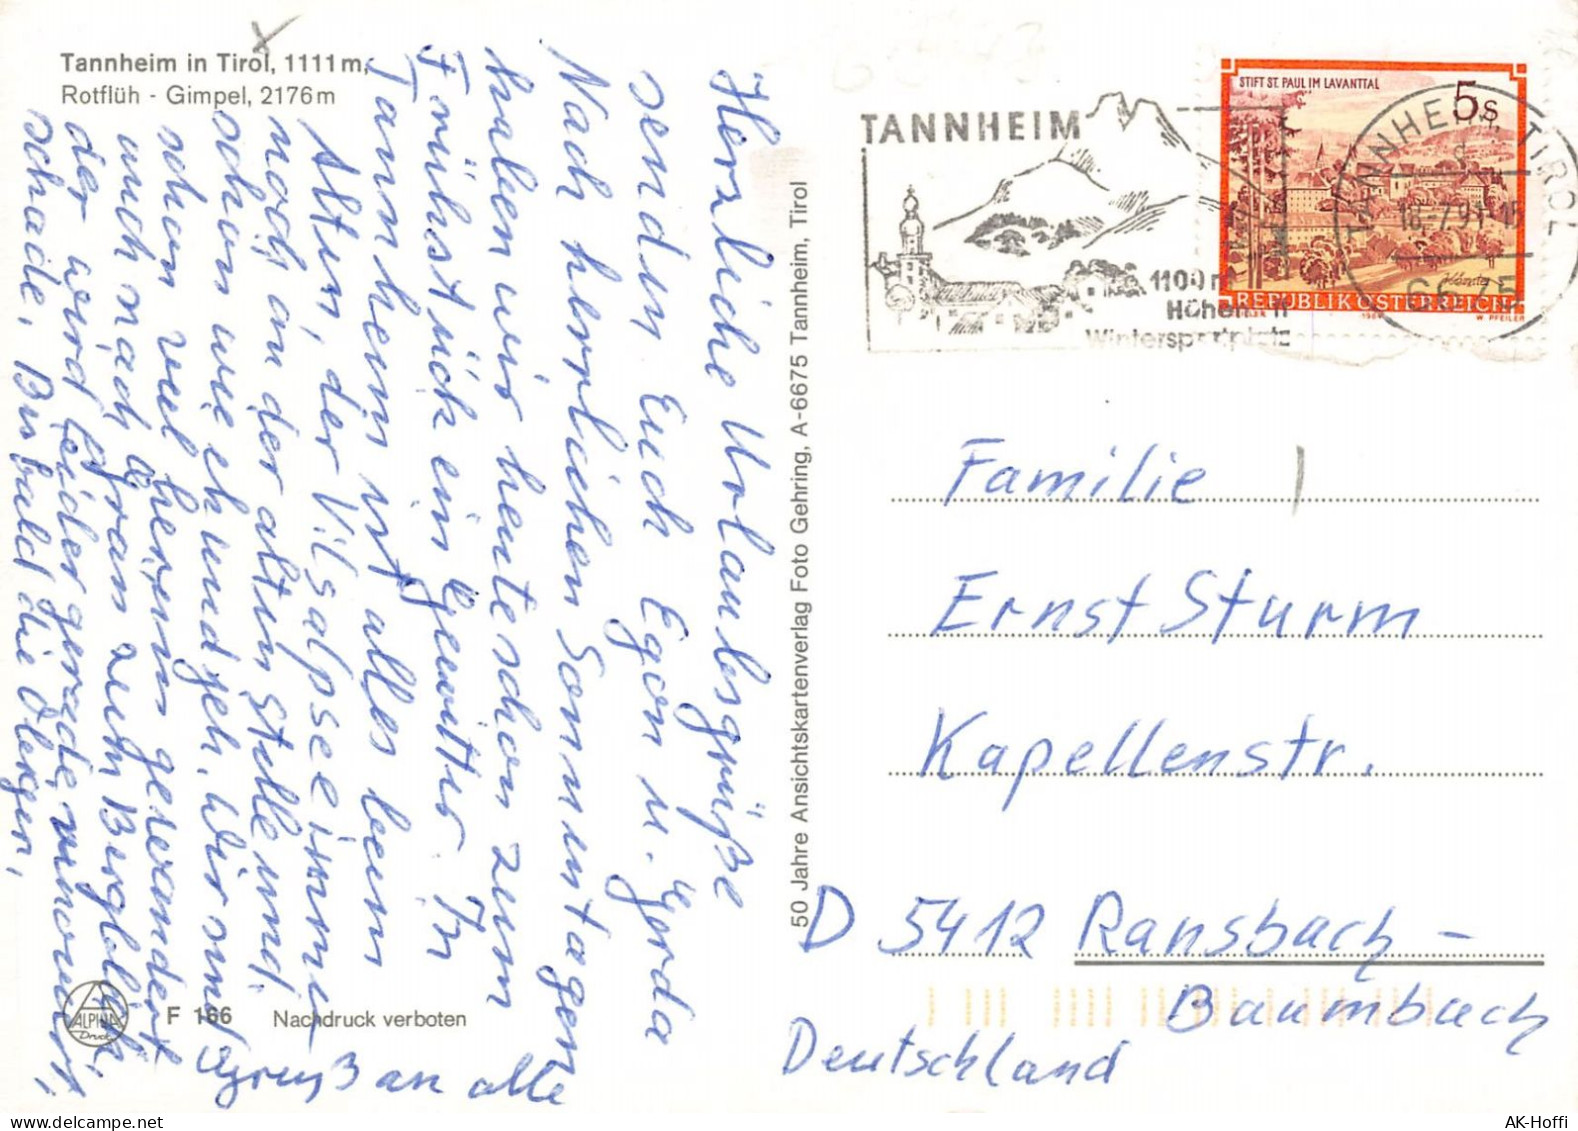 Tannheim in Tirol, 1111 m,
Rotflüh - Gimpel, 2176 m
Herzliche Urlaubsgrüße
senden Euch Egon u. Gerda
Nach herrlichen Sonnentagen
haben wir heute schon zum
Frühstück ein Gewitter. In
Tannheim ist alles beim
Alten, der Vilsalpsee immer
noch an der alten Stelle und
schön wie eh und jeh. Wir sind
schon viel herum gewandert
auch nach
der wird leider gerade renoviert
schade. Bis bald die
Gruß an alle
F 166
Nachdruck verboten
ALPINA
Druck
50 Jahre Ansichtskartenverlag Foto Gehring, A-6675 Tannheim, Tirol
TANNHEIM
1100 m
Wintersportplatz
STIFT ST. PAUL IM LAVANTTAL
5 S
REPUBLIK ÖSTERREICH
W. PFEILER
TANNHEIM, TIROL
18.-7.91-15
6675
Familie
Ernst Sturm
Kapellenstr.
D 5412 Ransbach -
Baumbach
Deutschland
AK-Hoffi